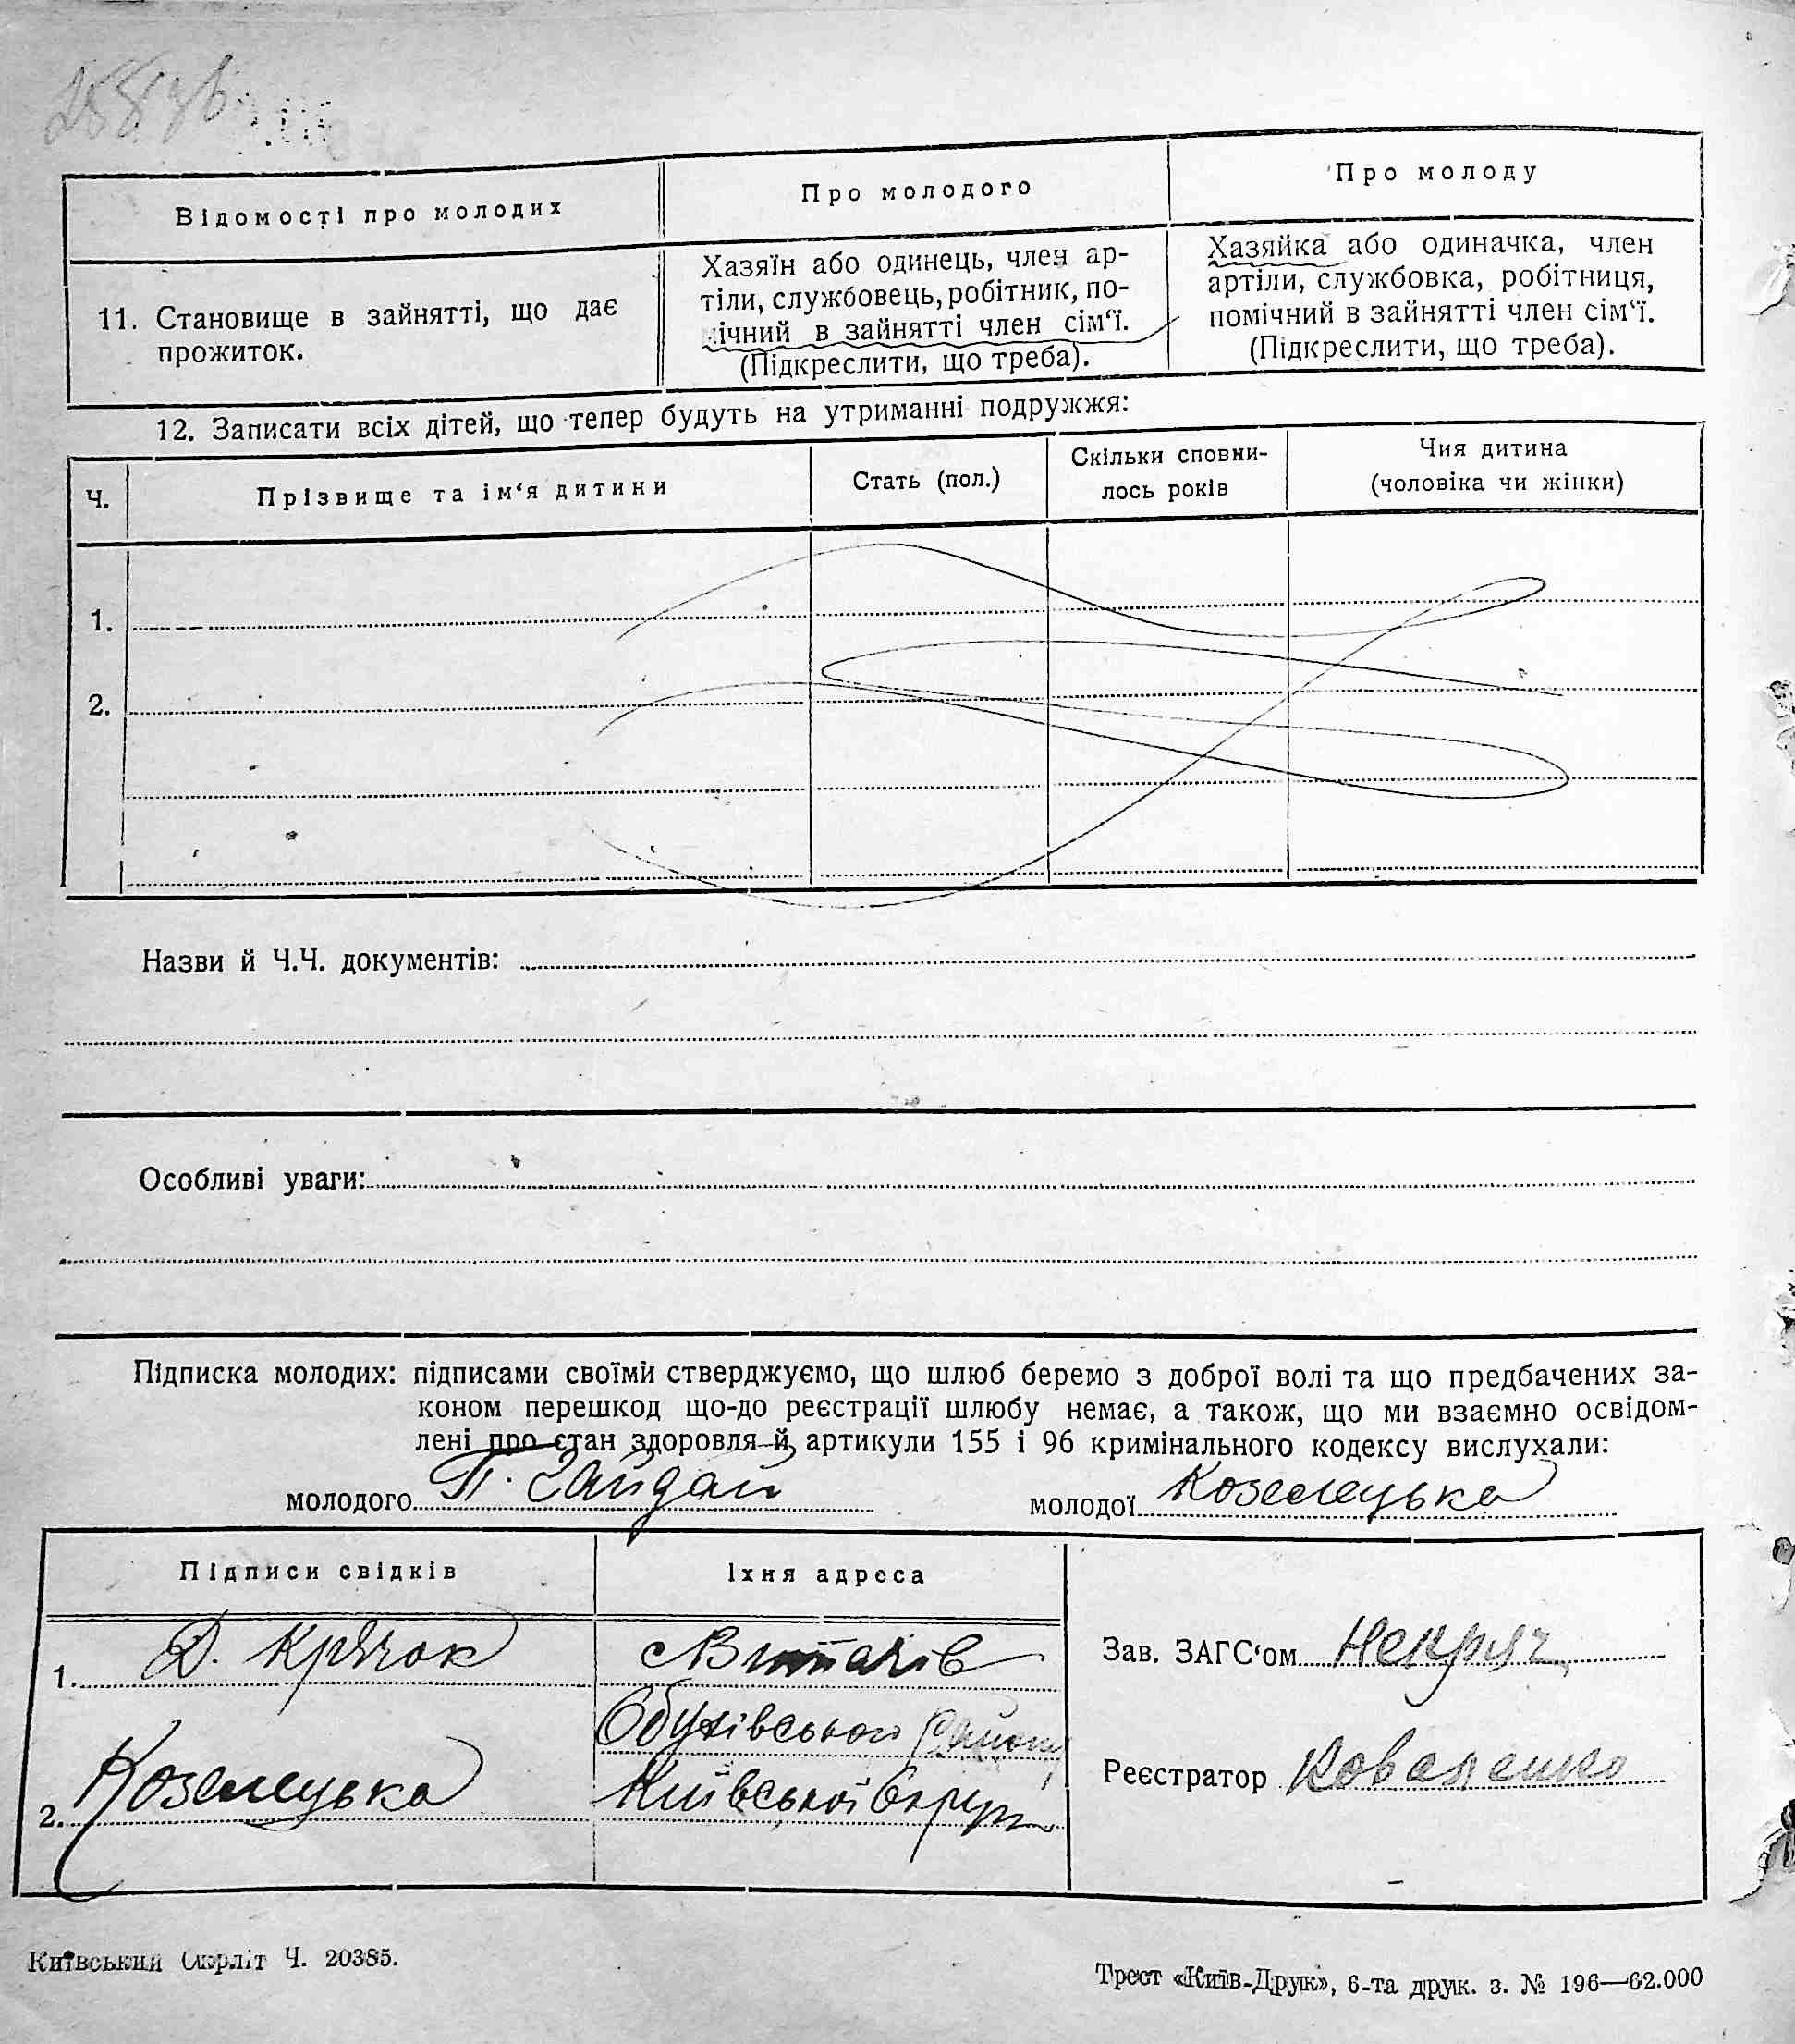 Відомості про молодих
Про молодого
Про молоду
11. Становище в зайнятті, що дає
прожиток.
Хазяїн або одинець, член ар-
тіли, службовець, робітник, по-
мічний в зайнятті член сім‘ї.
(Підкреслити, що треба).
Хазяйка або одиначка, член
артіли, службовка, робітниця,
помічний в зайнятті член сім‘ї.
(Підкреслити, що треба).
12. Записати всіх дітей, що тепер будуть на утриманні подружжя:
Ч.
Прізвище та ім‘я дитини
Стать (пол.)
Скільки сповни-
лось років
Чия дитина
(чоловіка чи жінки)
1.
2.
Назви й Ч.Ч. документів:
Особливі уваги:
Підписка молодих: підписами своїми стверджуємо, що шлюб беремо з доброї волі та що предбачених за-
коном перешкод що-до реєстрації шлюбу немає, а також, що ми взаємно освідом-
лені про стан здоровля й артикули 155 і 96 кримінального кодексу вислухали:
молодого П. Гайдай молодої Козелецька
Підписи свідків
Їхня адреса
1. Д. Крячок
с Витачів
Обухівського району
2. Козелецька
Київської Округи
Зав. ЗАГС‘ом Некряч
Реєстратор Коваленко
Київський Окрліт Ч. 20385.
Трест «Київ-Друк», 6-та друк. з. № 196—62.000